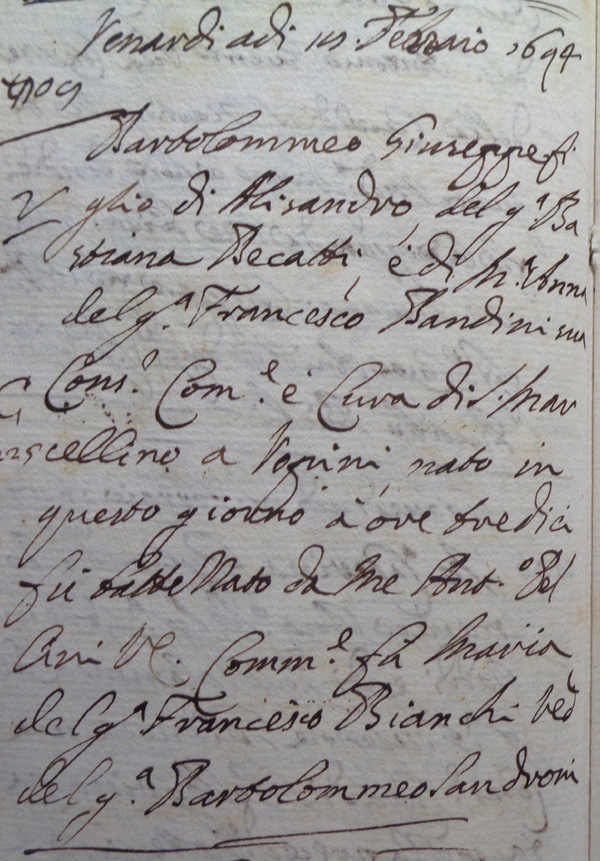 Venardi adi Febbraio 1694
Bartolommeo Giuseppe fi
glio di Alisandro del g.ª Ba
stiana Becatti, è di M.ª Anna
del g.ª Francesco Bandini sua
Cons.e Com.e è Cura di S. Mar
cellino a nato in
questo giorno à ore tredici
fù battezzato da me Ant.o Bel
Comm.e fù Maria
del g.ª Francesco Bianchi Ved
del g.ª Bartolommeo Sandroni